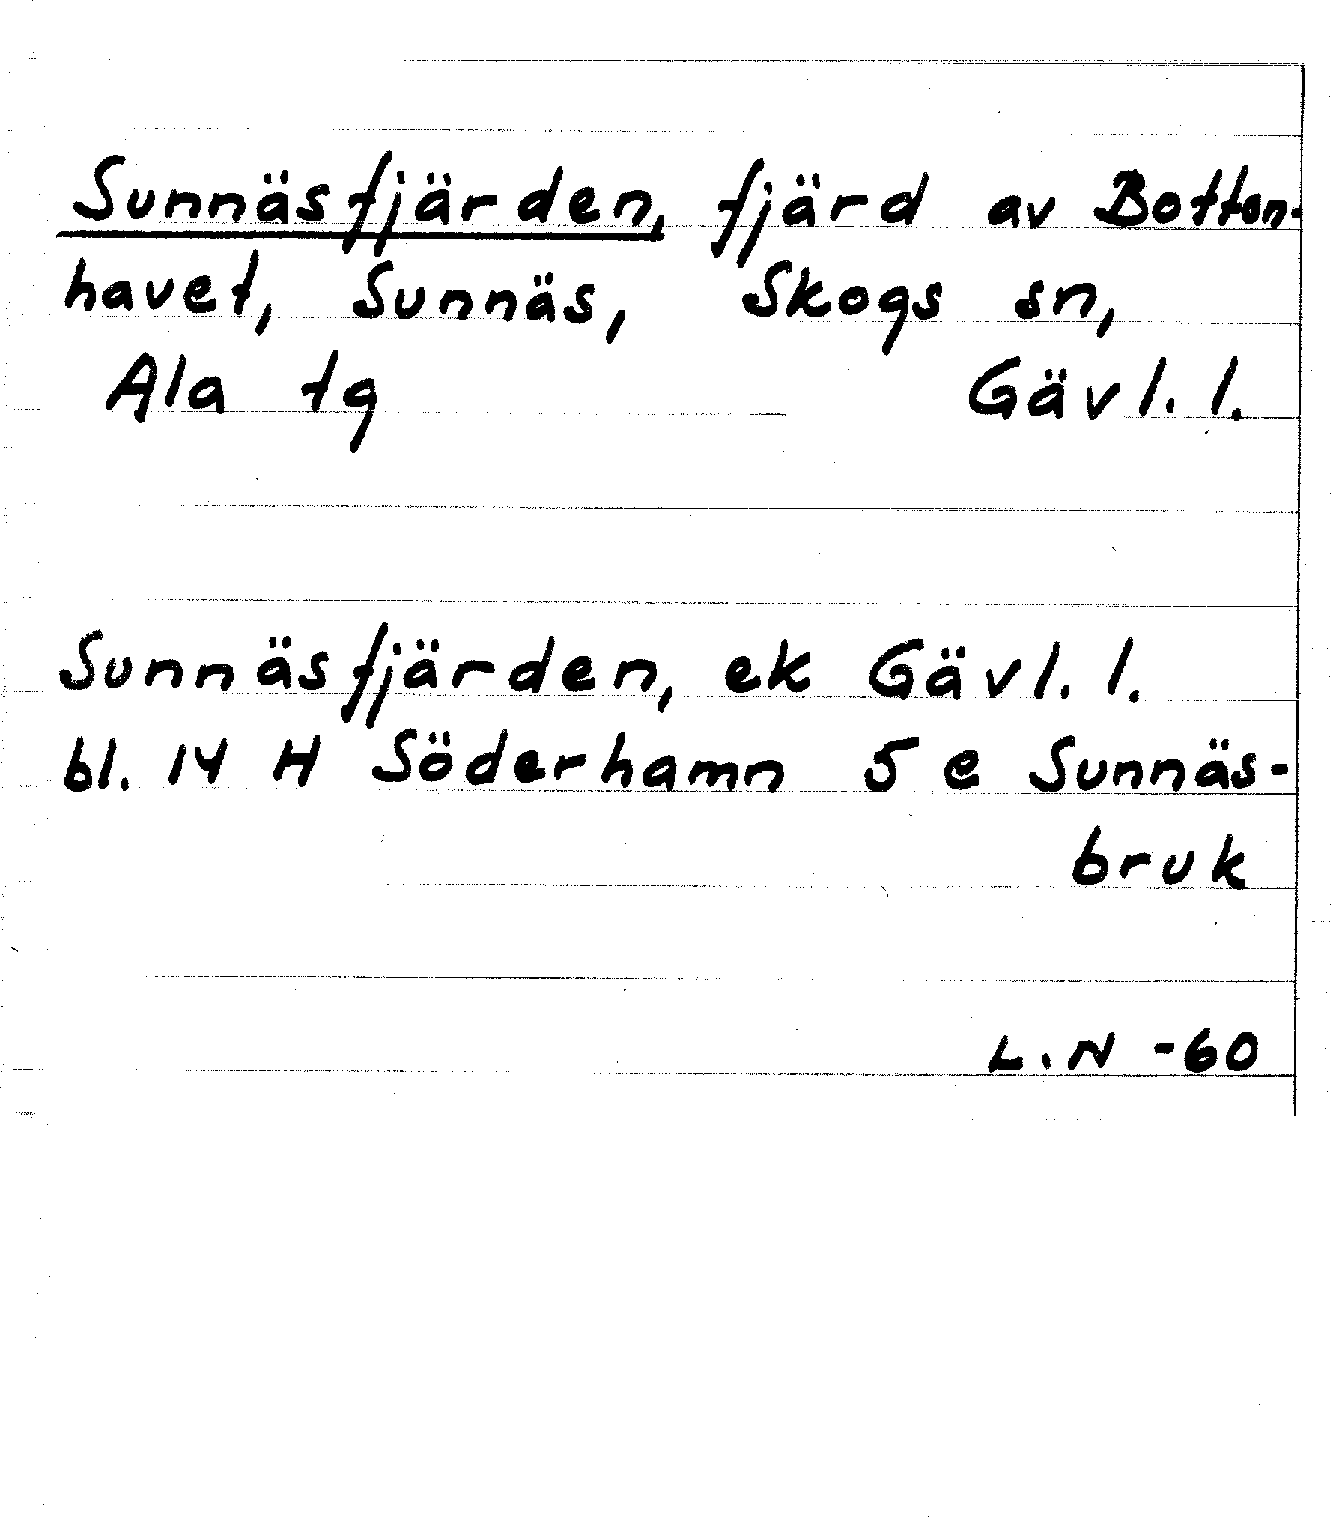 Sunnäsfjärden, fjärd av Botten-
havet, Sunnäs, Skogs sn,
Ala tg Gävl. l.
Sunnäsfjärden, ek Gävl. l.
bl. 14 H Söderhamn 5 e Sunnäs-
bruk
L.N -60